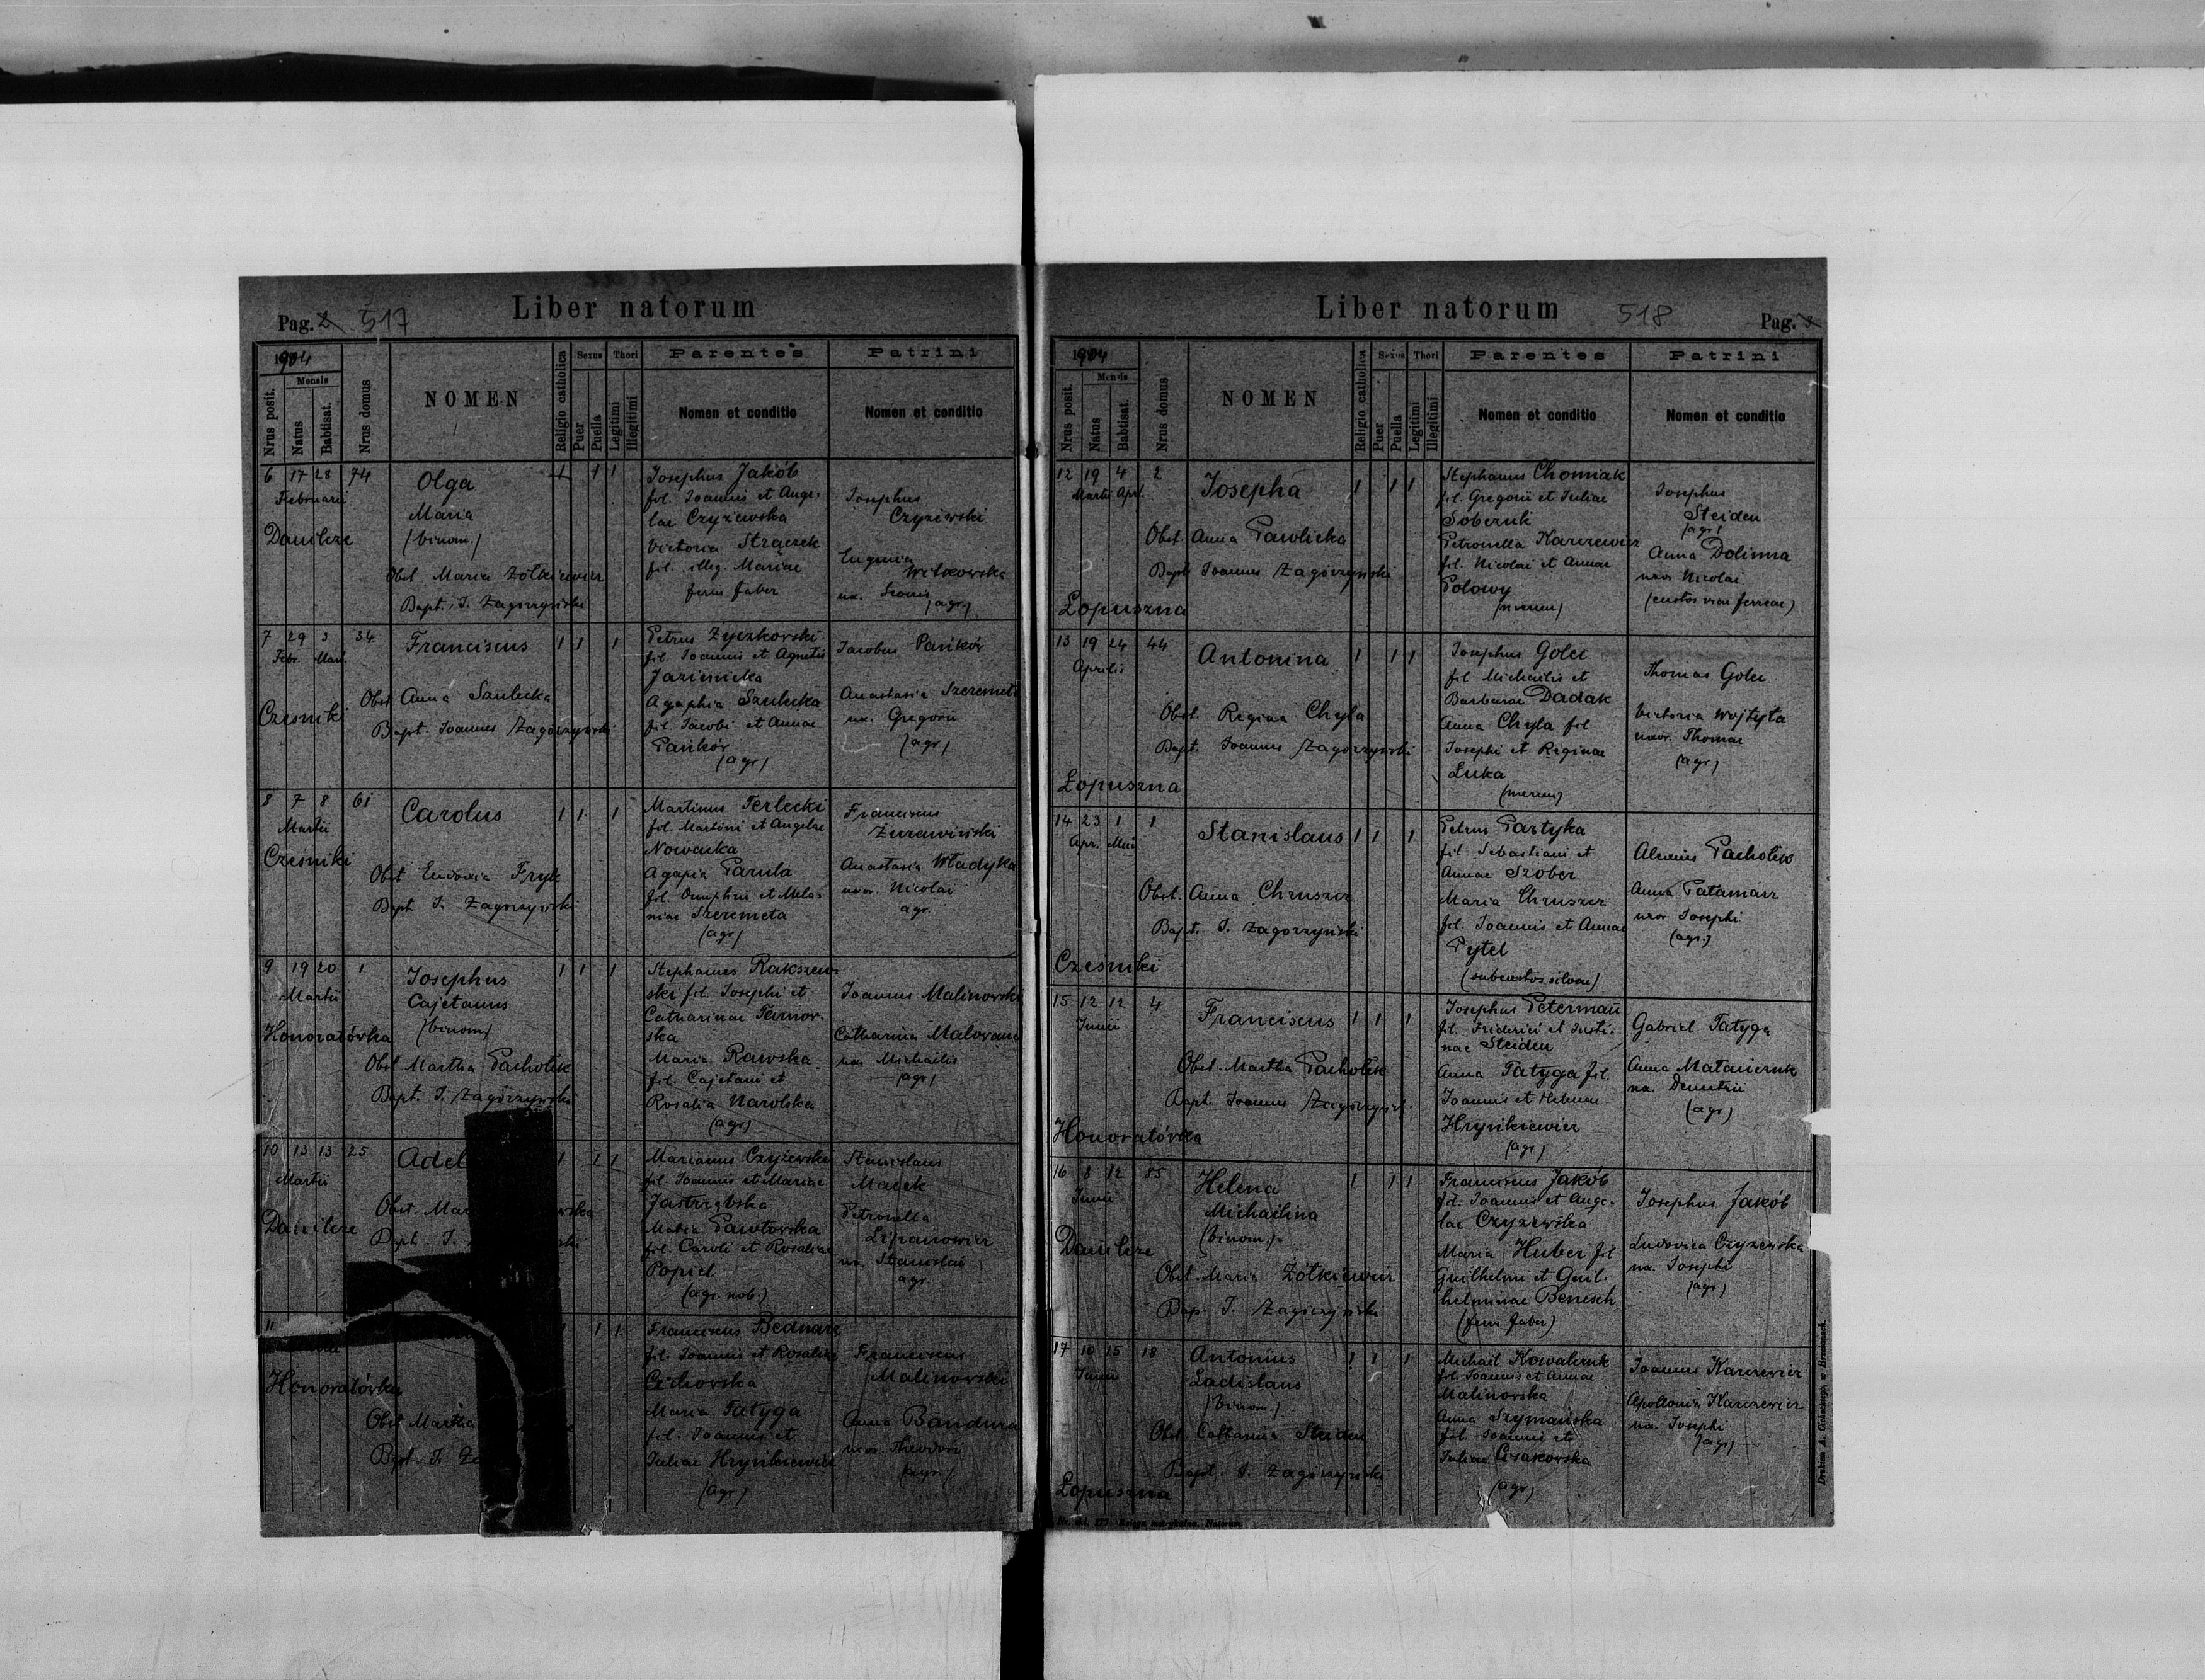 Liber natorum
Pag. 2 517
1904
Nrus posit.
Mensis
Natus
Babtisat.
Nrus domus
NOMEN
Religio catholica
Sexus
Puer
Puella
Thori
Legitimi
Illegitimi
Parentes
Nomen et conditio
Patrini
Nomen et conditio
6 17 28 74
Februarii
Danilcze
Olga
Maria
(binom.)
Obst. Maria Żółkiewicz
Bapt. J. Zagórzyński
1 1 1
Josephus Jakób
fil. Joannis et Ange-
lae Czyżewska
Victoria Strączek
fil. illeg. Mariae
ferri faber
Josephus
Czyżewski
Eugenia
Witkowska
ux. Leonis
(agr.)
7 29 3 34
Febr. Mart.
Czesniki
Franciscus
Obst. Anna Saulecka
Bapt. Joannes Zagórzyński
1 1 1
Petrus Zyczkowski
fil. Joannis et Agnetis
Jazienicka
Agaphia Saulecka
fil. Jacobi et Annae
Pańków
(agr)
Jacobus Pańków
Anastasia Szeremeta
ux. Gregorii
(agr)
8 7 8 61
Martii
Czesniki
Carolus
Obst. Eudoxia Fryk
Bapt. J. Zagórzyński
1 1 1
Martinus Terlecki
fil. Martini et Angelae
Nowacka
Agapia Parula
fil. Onuphrii et Mela-
niae Szeremeta
(agr)
Franciscus
Żurawiński
Anastasia Władyka
uxor. Nicolai
agr.
9 19 20 1
Martii
Honoratówka
Josephus
Cajetanus
(binom)
Obst. Martha Pachołek
Bapt. J. Zagórzyński
1 1 1
Stephanus Rakszew-
ski fil. Josephi et
Catharinae Tarnow-
ska
Maria Rawska
fil. Cajetani et
Rosalia Narolska
(agr)
Joannes Malinowski
Catharina Malowana
ux. Michaelis
(agr)
10 13 13 25
Martii
Danilcze
Adel
Obst. Mar wska
Bapt. J. ski
1 1 1
Marianus Czyżewski
fil. Joannis et Mariae
Jastrzębska
Maria Pawłowska
fil. Caroli et Rosaliae
Popiel
(agr. nob.)
Stanislaus
Macek
Petronella
ux. Stanislai
agr.
11
Honoratówka
Obst. Martha
Bapt. J. Za
1 1 1
Franciscus Bednarz
fil. Joannis et Rosaliae
Cichowska
Maria Tatyga
fil. Joannis et
Juliae Hryńkiewicz
(agr)
Franciscus
Malinowski
Anna Bandura
uxor Theodori
(agr.)
Liber natorum
518 Pag. 3
1904
Nrus posit.
Mensis
Natus
Babtisat.
Nrus domus
NOMEN
Religio catholica
Sexus
Puer
Puella
Thori
Legitimi
Illegitimi
Parentes
Nomen et conditio
Patrini
Nomen et conditio
12 19 4 2
Martii Apr.
Łopuszna
Josepha
Obst. Anna Pawlicka
Bapt. Joannes Zagórzyński
1 1 1
Stephanus Chomiak
fil. Gregorii et Juliae
Soberuk
Petronella Karczewicz
fil. Nicolai et Annae
Polowy
Josephus
Steiden
(agr)
Anna Dolinna
uxor Nicolai
(custos viae ferreae)
13 19 24 44
Aprilis
Łopuszna
Antonina
Obst. Regina Chyla
Bapt. Joannes Zagórzyński
1 1 1
Josephus Golec
fil Michaelis et
Barbarae Dadak
Anna Chyla fil
Josephi et Reginae
Luka
Thomas Golec
Victoria Wojtyła
uxor. Thomae
(agr)
14 23 1 1
Apr. Maii
Czesniki
Stanislaus
Obst. Anna Chruszcz
Bapt. J. Zagórzyński
1 1 1
Petrus Partyka
fil. Sebastiani et
Annae Szober
Maria Chruszcz
fil. Joannis et Annae
Pytel
(subcustos silvae)
Alexius Pachołek
Anna Patamarz
uxor Josephi
(agr.)
15 12 12 4
Junii
Honoratówka
Franciscus
Obst. Martha Pachołek
Bapt. Joannes Zagórzyński
1 1 1
Josephus Peterman
fil. Friderici et Justi-
nae Steiden
Anna Tatyga fil.
Joannis et Helenae
Hryńkiewicz
(agr)
Gabriel Tatyga
Anna Matanczuk
ux. Demetrii
(agr)
16 8 12 85
Junii
Danilcze
Helena
Michaelina
(binom.)
Obst. Maria Żółkiewicz
Bap. J. Zagórzyński
1 1 1
Franciscus Jakób
fil. Joannis et Ange-
lae Czyżewska
Maria Huber fil
Guilhelmi et Guil-
helminae Benesch
(ferri faber)
Josephus Jakób
Ludovica Czyżewska
ux. Josephi
(agr)
17 10 15 18
Junii
Łopuszna
Antonius
Ladislaus
(binom.)
Obst. Catharina Steiden
Bapt. J. Zagórzyński
1 1 1
Michael Kowalczuk
fil. Joannis et Annae
Malinowska
Anna Szymańska
fil. Joannis et
Juliae Czakowska
(agr)
Joannes Karczewicz
Apollonia Karczewicz
ux. Josephi
(agr)